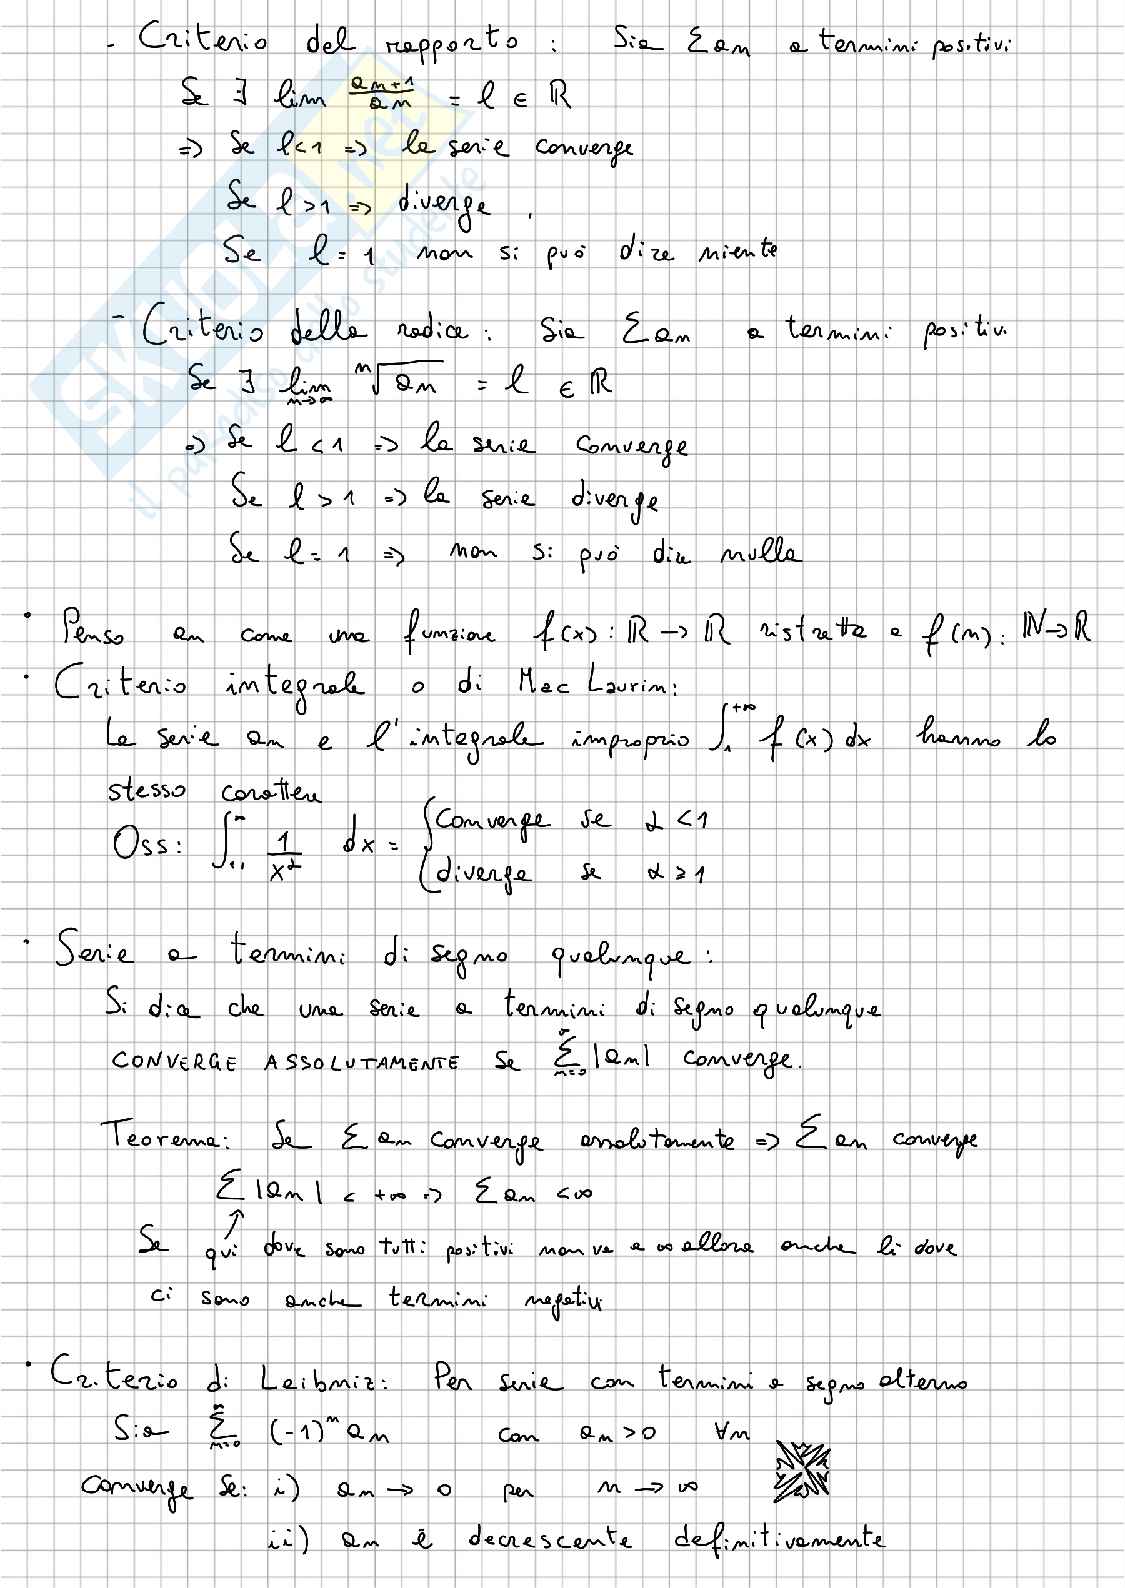 - Criterio del rapporto : Sia Σan a termini positivi
Se ∃ lim an+1/an = l ∈ ℝ
=> Se l<1 => la serie converge
Se l>1 => diverge .
Se l=1 non si può dire niente
- Criterio della radice: Sia Σan a termini positivi
Se ∃ lim n→∞ ⁿ√an = l ∈ ℝ
=> Se l<1 => la serie converge
Se l>1 => la serie diverge
Se l=1 => non si può dire nulla
· Penso an come una funzione f(x): ℝ→ℝ ristretta a f(n): ℕ→ℝ
· Criterio integrale o di Mac Laurin:
La serie an e l'integrale improprio ∫₁^+∞ f(x)dx hanno lo
stesso carattere
Oss: ∫₁^∞ 1/x^α dx = { converge se α<1
diverge se α≥1
· Serie a termini di segno qualunque:
Si dice che una serie a termini di segno qualunque
CONVERGE ASSOLUTAMENTE Se Σ n=0 ∞ |an| converge.
Teorema: Se Σan converge assolutamente => Σan converge
Σ|an| < +∞ => Σan <∞
Se qui dove sono tutti positivi non va a ∞ allora anche lì dove
ci sono anche termini negativi
· Criterio di Leibniz: Per serie con termini a segno alterno
Sia Σ n=0 ∞ (-1)ⁿan con an>0 ∀n
Converge Se: i) an→0 per n→∞
ii) an è decrescente definitivamente
SKUOLA.net
il paradiso dello studente